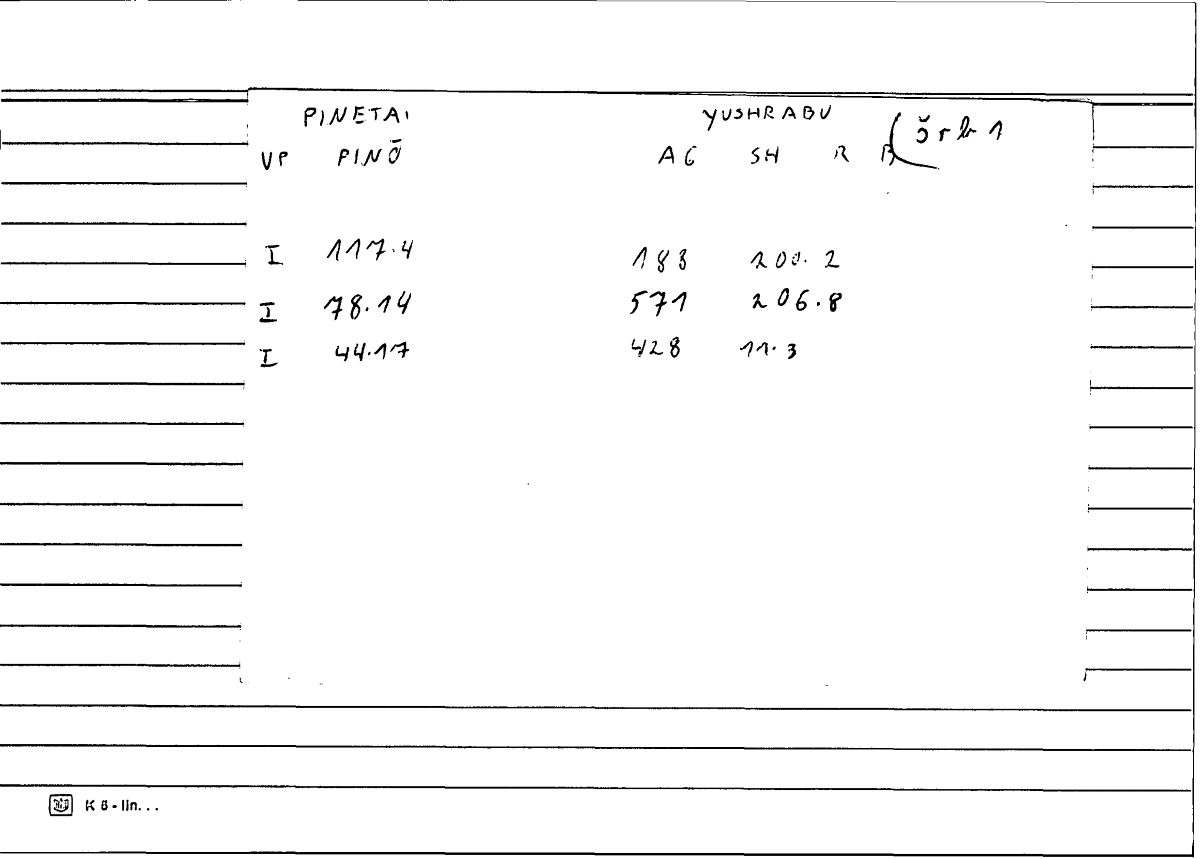 PINETAI YUSHRABU (ɔ̆ r b 1
VP PINŌ AG SH R B
I 117.4 183 200.2
I 78.14 571 206.8
I 44.17 428 11.3
K 6 - lin...